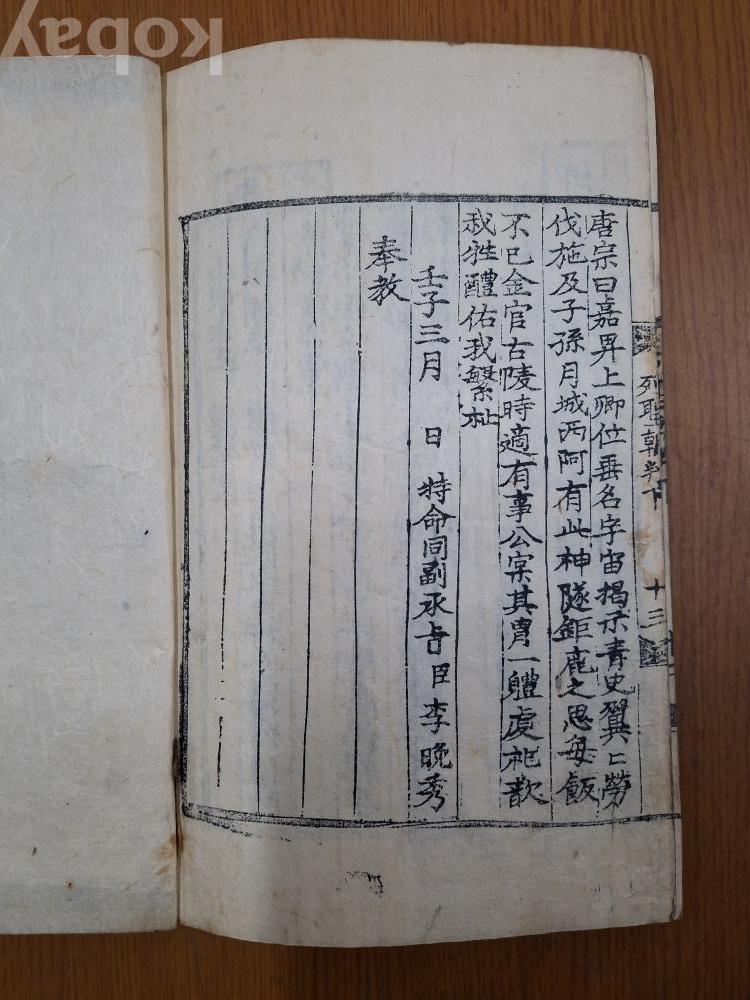 唐宗曰嘉畀上卿位垂名宇宙揭示青史翼〻勞
伐施及子孫月城西阿有此神隧鉅鹿之思每飯
不已金官古陵時適有事公寀其胄一軆虔祀歆
我牲醴佑我繁祉
壬子三月　日　特命同副承旨臣李晩秀
奉教
列聖朝判下
十三
kobay